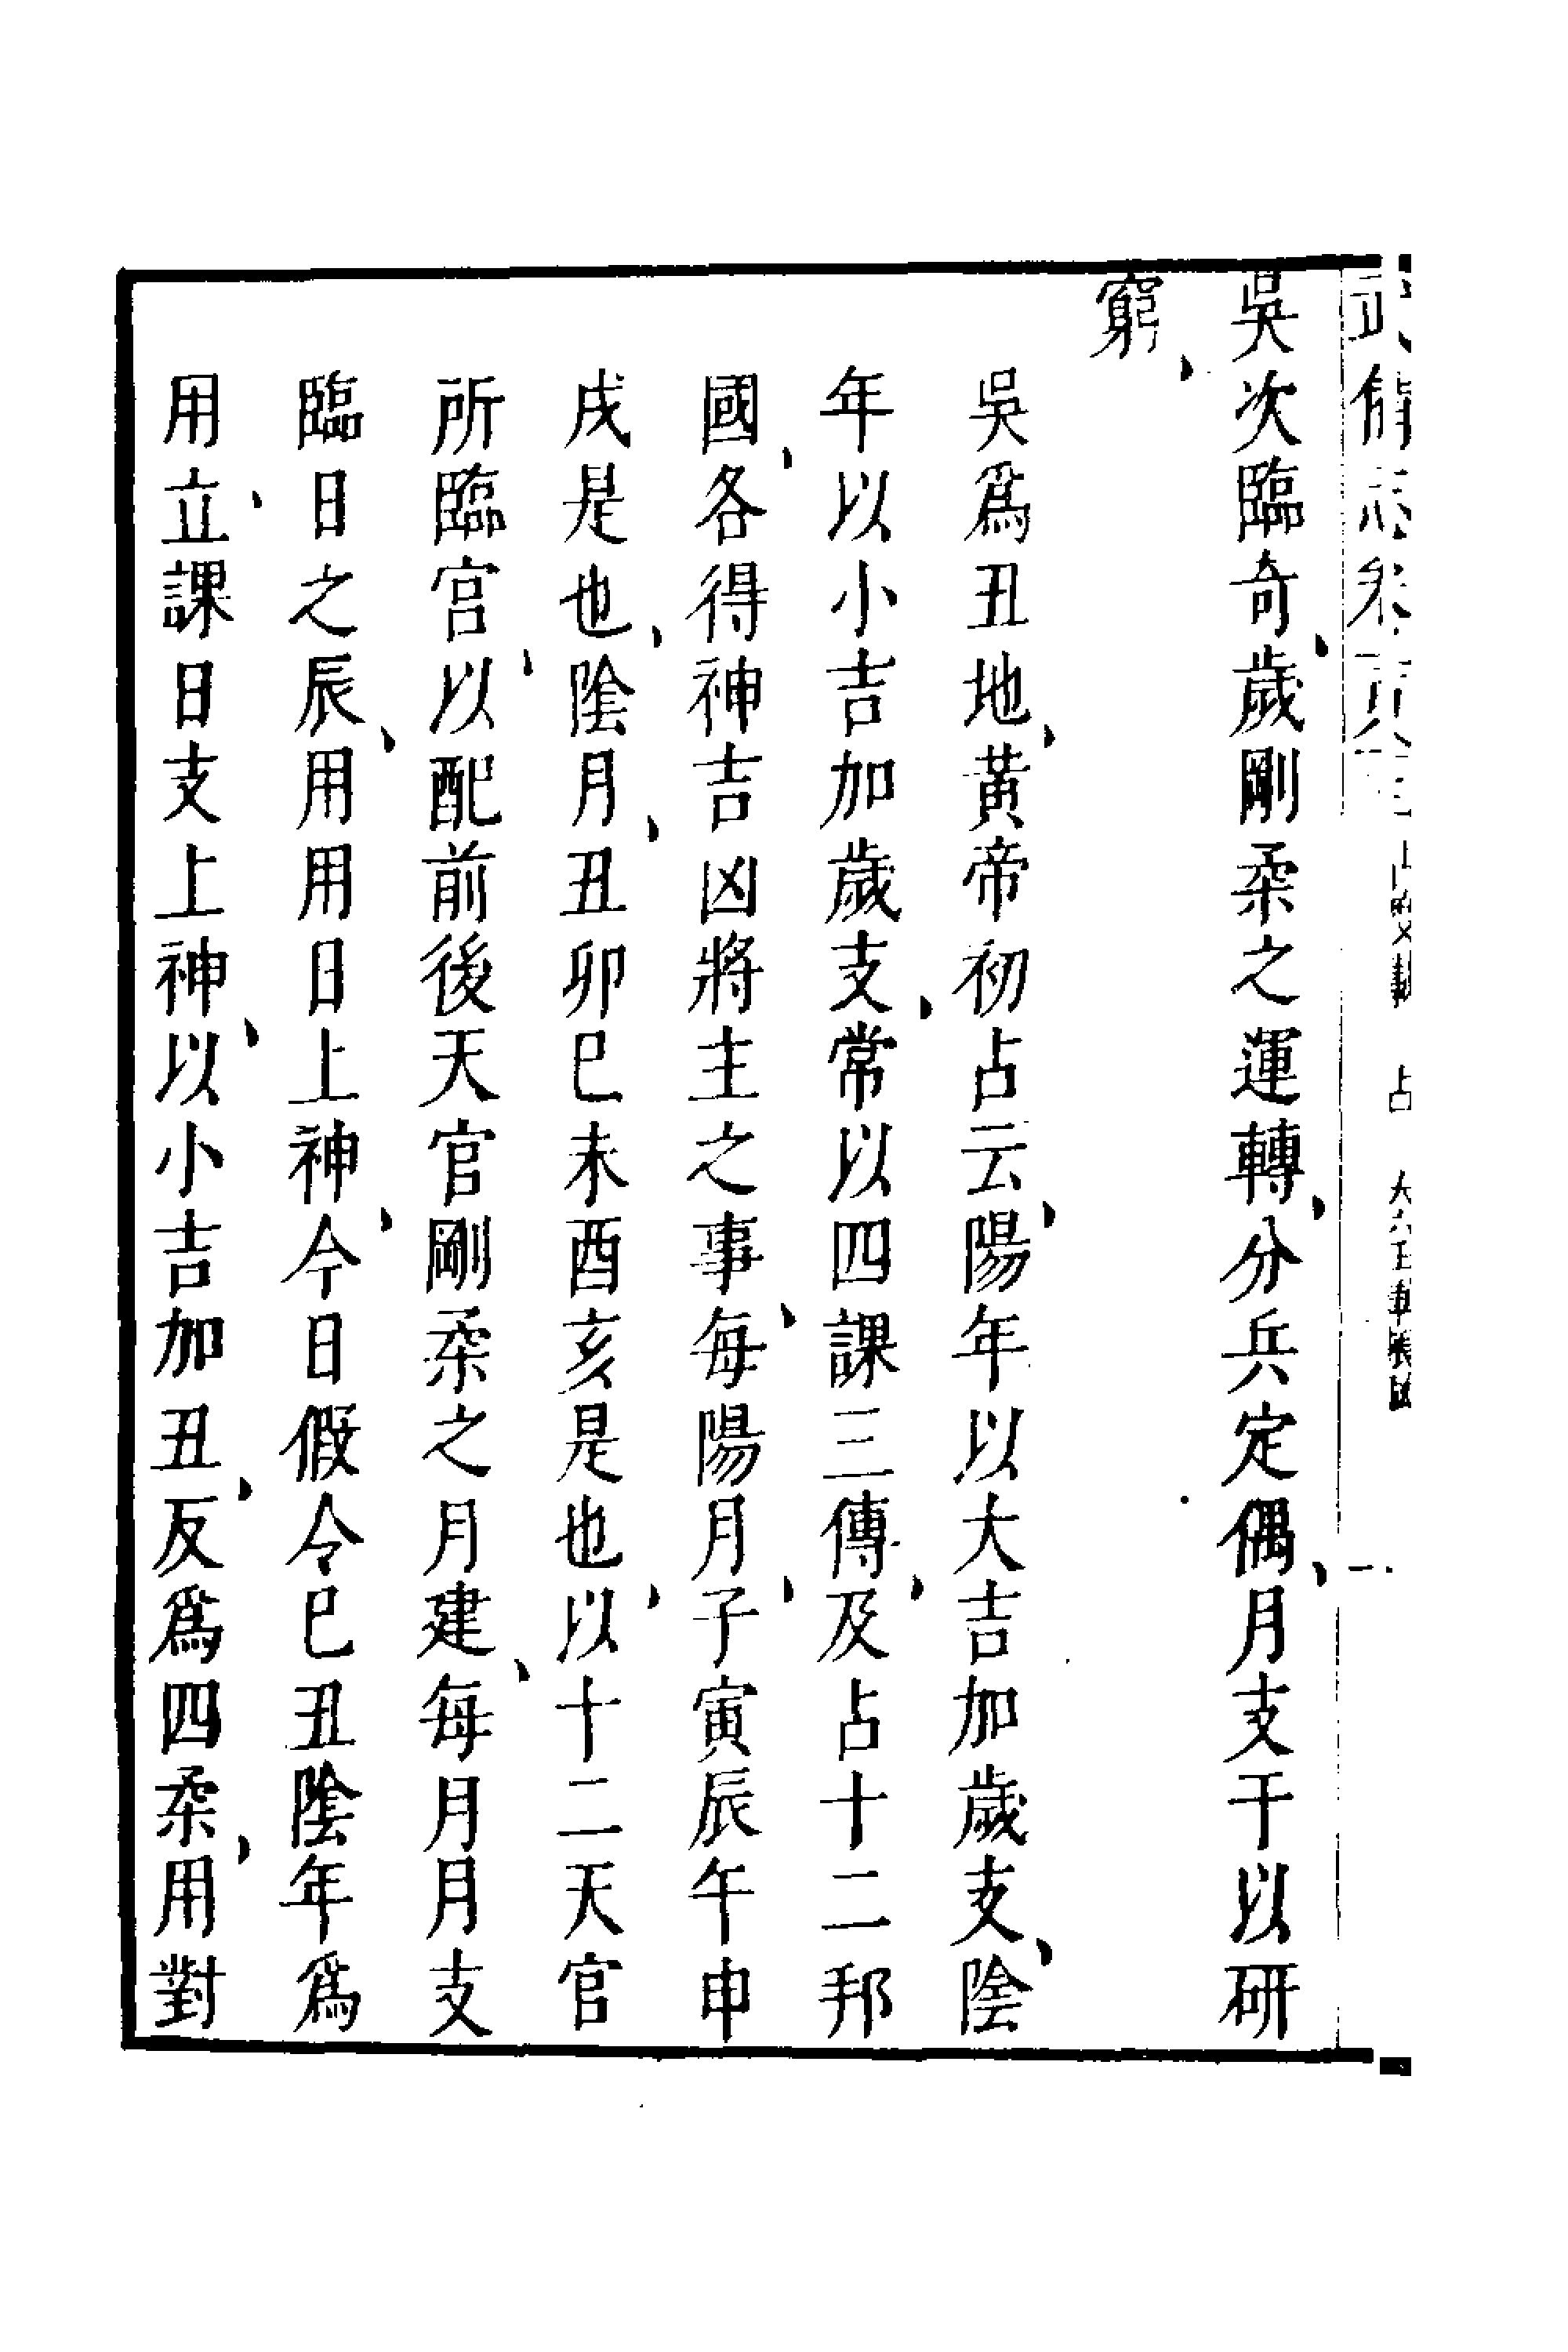 吳次臨奇歲剛柔之運轉分兵定偶月支干以研
窮
吳爲丑地黃帝初占云陽年以大吉加歲支陰
年以小吉加歲支常以四課三傳及占十二邦
國各得神吉凶將主之事每陽月子寅辰午申
戌是也陰月丑卯巳未酉亥是也以十二天官
所臨宮以配前後天官剛柔之月建每月月支
臨日之辰用用日上神今日假令巳丑陰年爲
用立課日支上神以小吉加丑反爲四柔用對